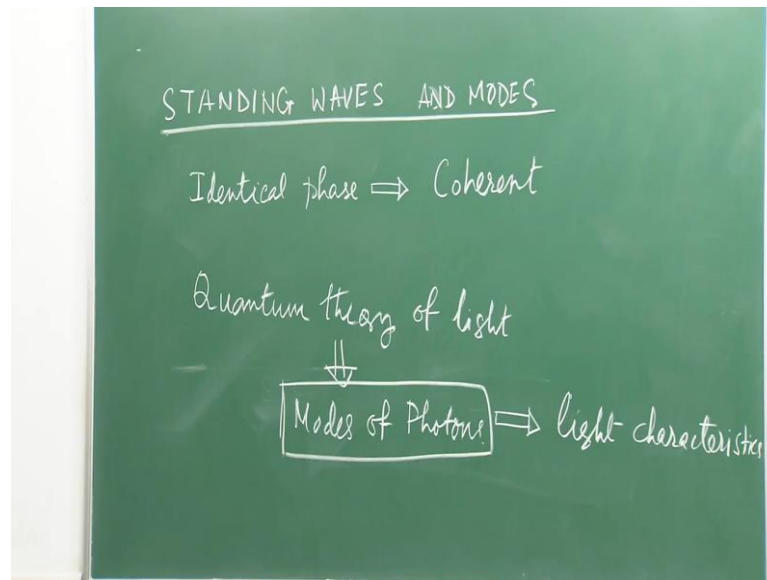 STANDING WAVES AND MODES
Identical phase ⇒ Coherent
Quantum theory of light
⇓
Modes of Photons ⇒ light characteristics